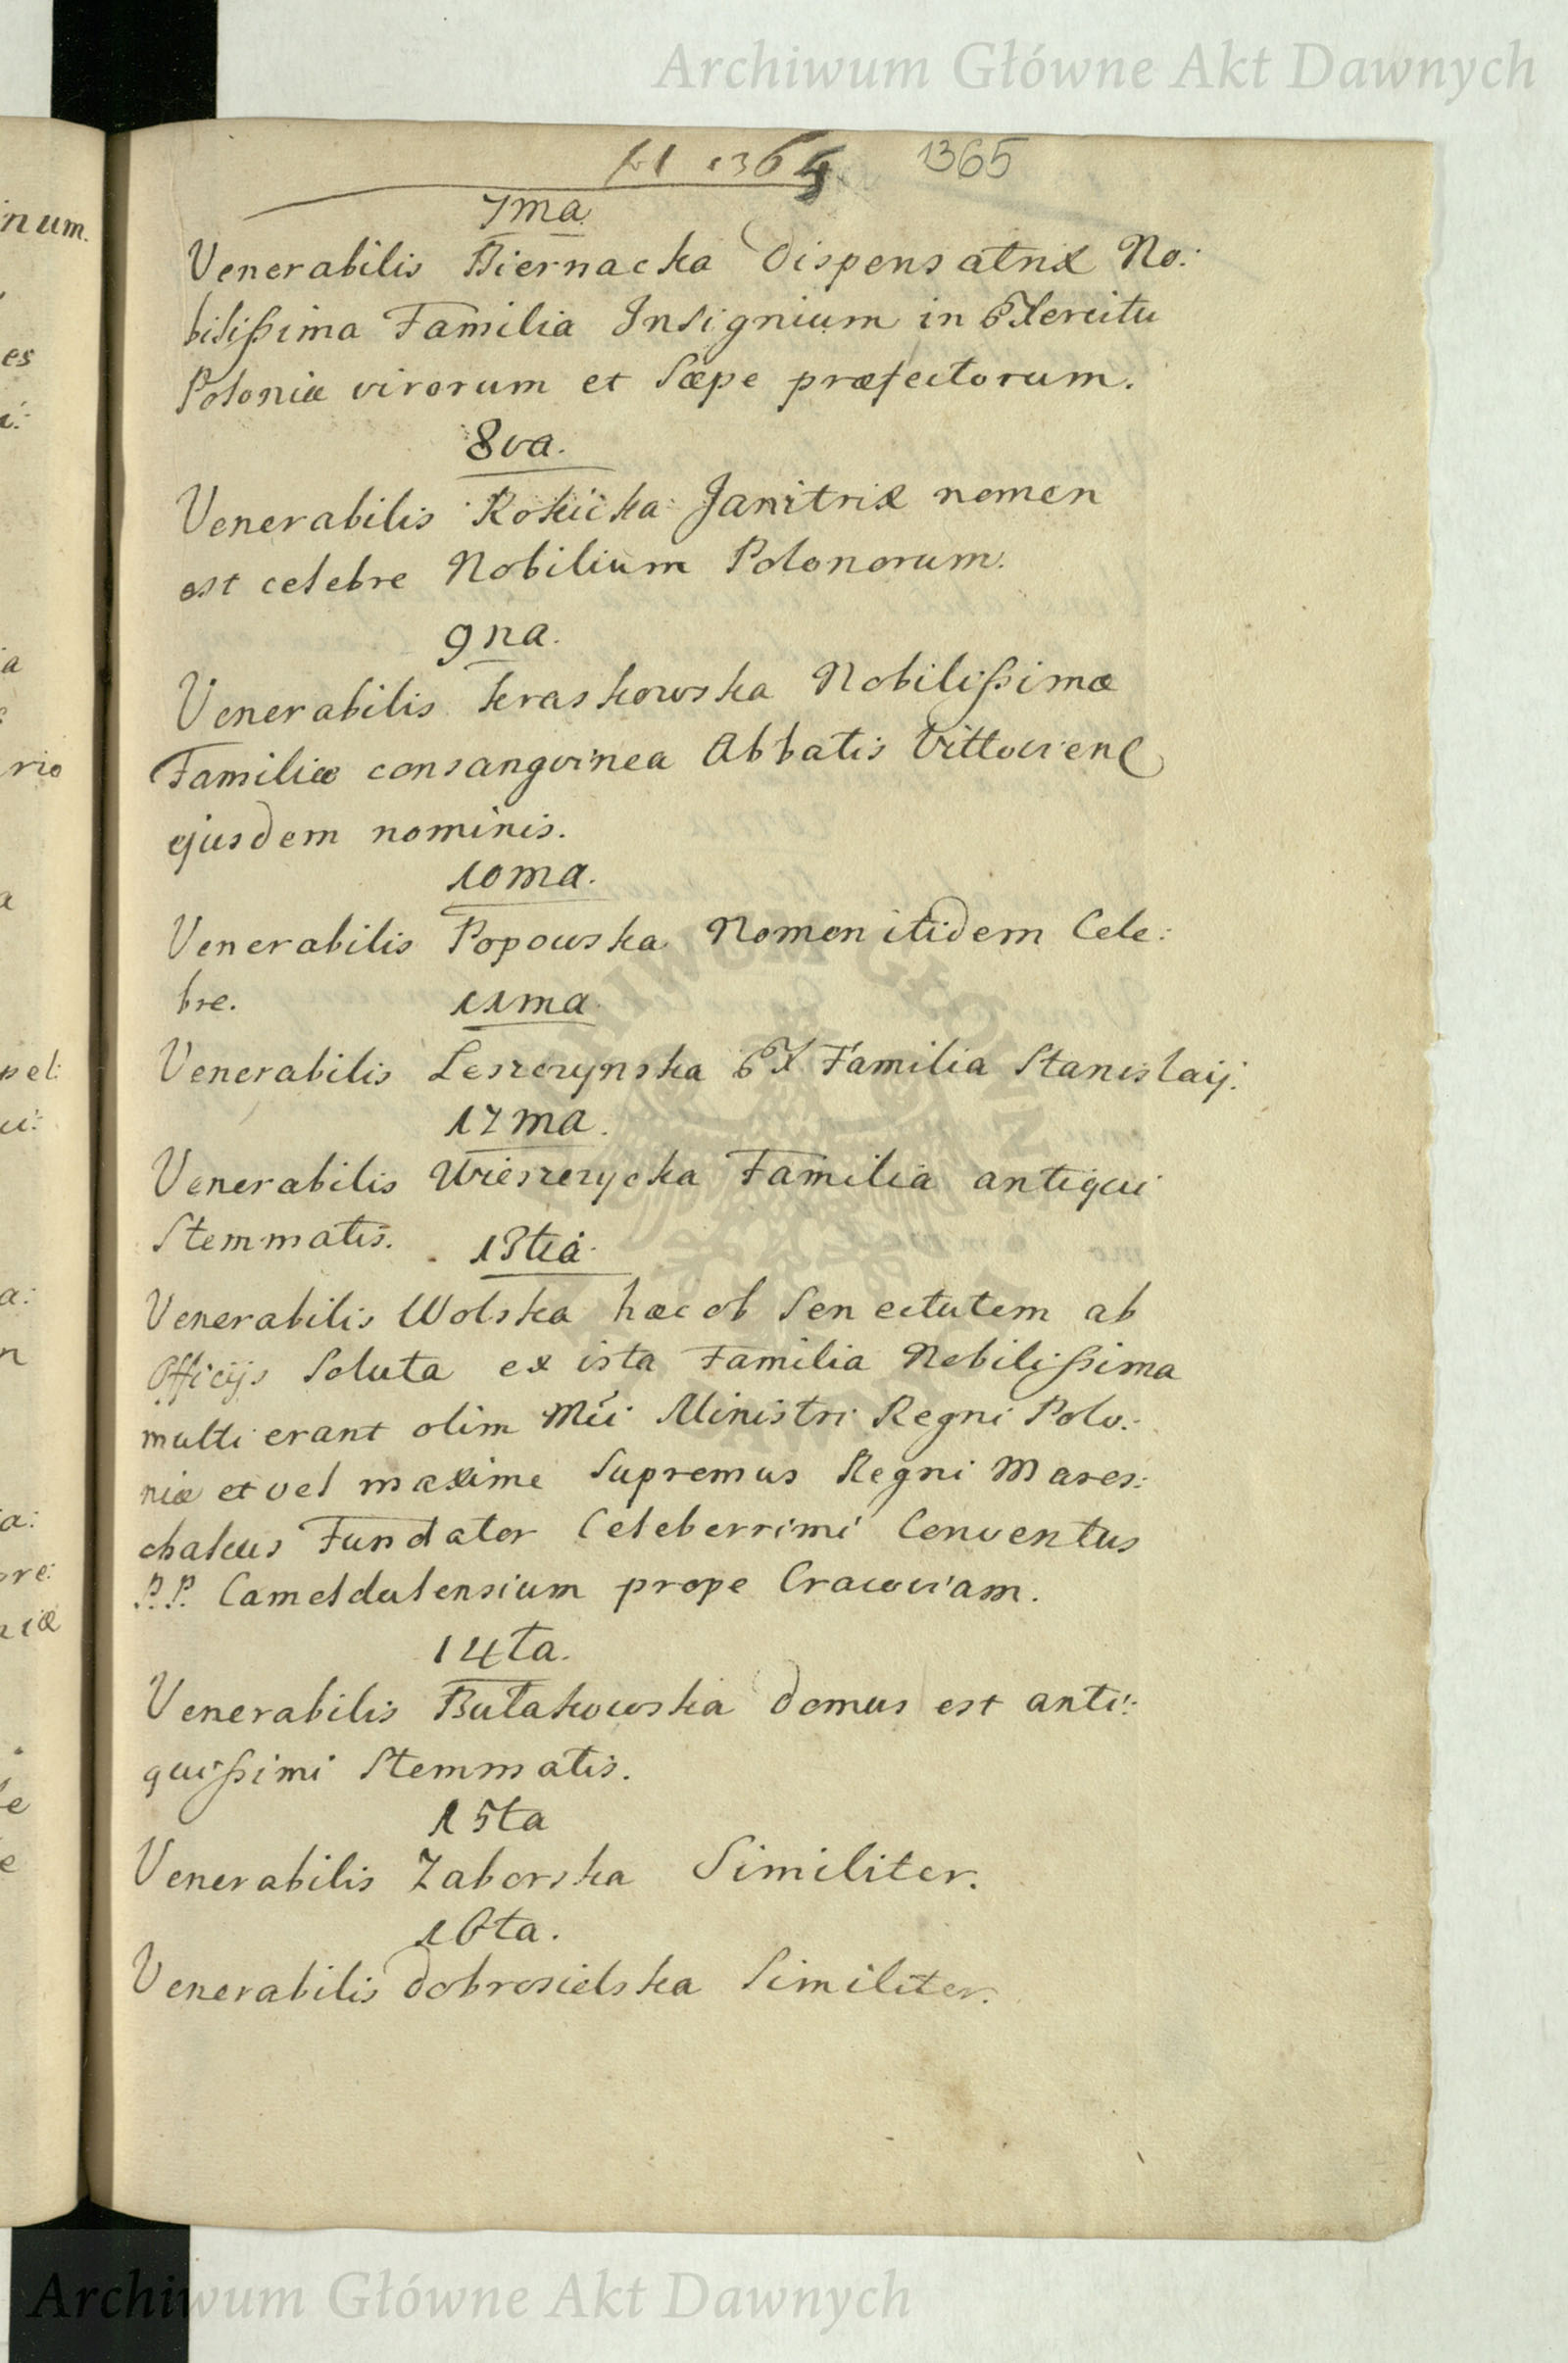 Archiwum Główne Akt Dawnych
1365
7ma
Venerabilis Biernacka Dispensatrix No:
bilißima Familia Insignium in Exercitu
Poloniæ virorum et sæpe præfectorum.
8va.
Venerabilis Rokicka Janitrix nomen
est celebre Nobilium Polonorum.
9na.
Venerabilis Kraskowska Nobilißimæ
Familiæ consangvinea Abbatis
ejusdem nominis.
10ma.
Venerabilis Popowska Nomen itidem Cele:
bre.
11ma
Venerabilis Leszczynska Ex Familia Stanislaij.
12ma.
Venerabilis Wieszczycka Familia antiqui
Stemmatis.
13tia.
Venerabilis Wolska hæc ob Senectutem ab
Officijs Soluta ex ista Familia Nobilißima
multi erant olim Ministri Regni Polo:
niæ et vel maxime Supremus Regni Mares:
chalcus Fundator Celeberrimi Conventus
P.P. Cameldulensium prope Cracoviam.
14ta.
Venerabilis Bułakowska domus est anti:
quißimi Stemmatis.
15ta
Venerabilis Zaborska Similiter.
16ta.
Venerabilis Dobrosielska Similiter.
Archiwum Główne Akt Dawnych